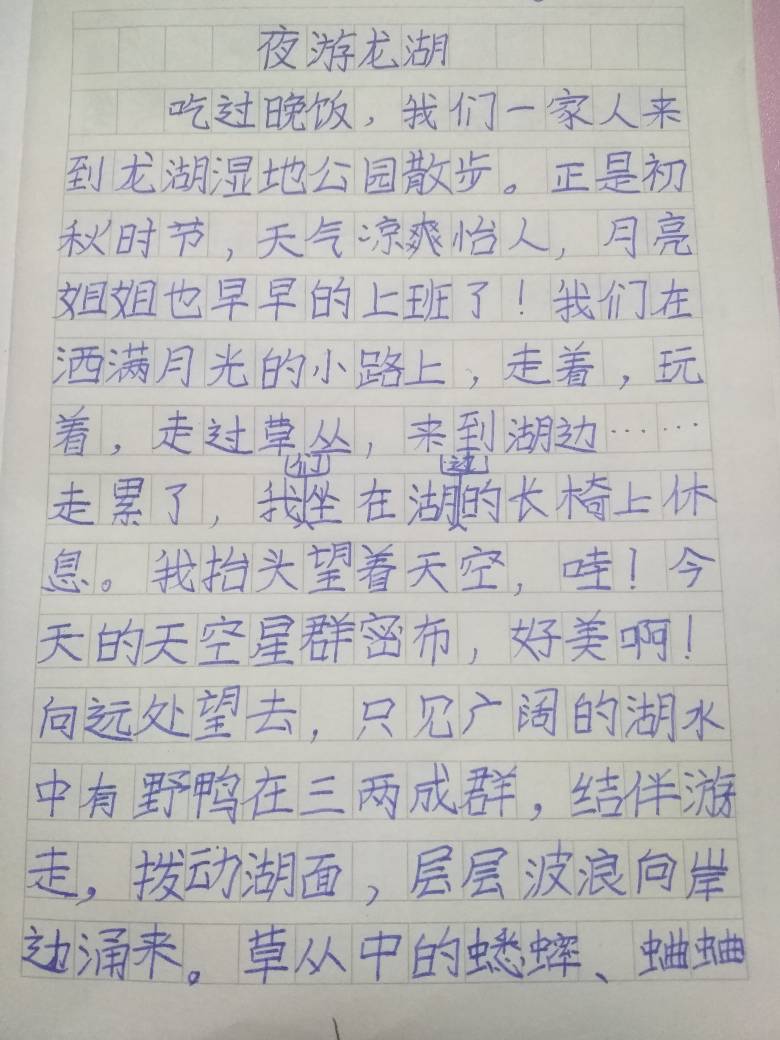 夜游龙湖
吃过晚饭，我们一家人来
到龙湖湿地公园散步。正是初
秋时节，天气凉爽怡人，月亮
姐姐也早早的上班了！我们在
洒满月光的小路上，走着，玩
着，走过草丛，来到湖边……
走累了，我们坐在湖边的长椅上休
息。我抬头望着天空，哇！今
天的天空星群密布，好美啊！
向远处望去，只见广阔的湖水
中有野鸭在三两成群，结伴游
走，拨动湖面，层层波浪向岸
边涌来。草丛中的蟋蟀、蛐蛐